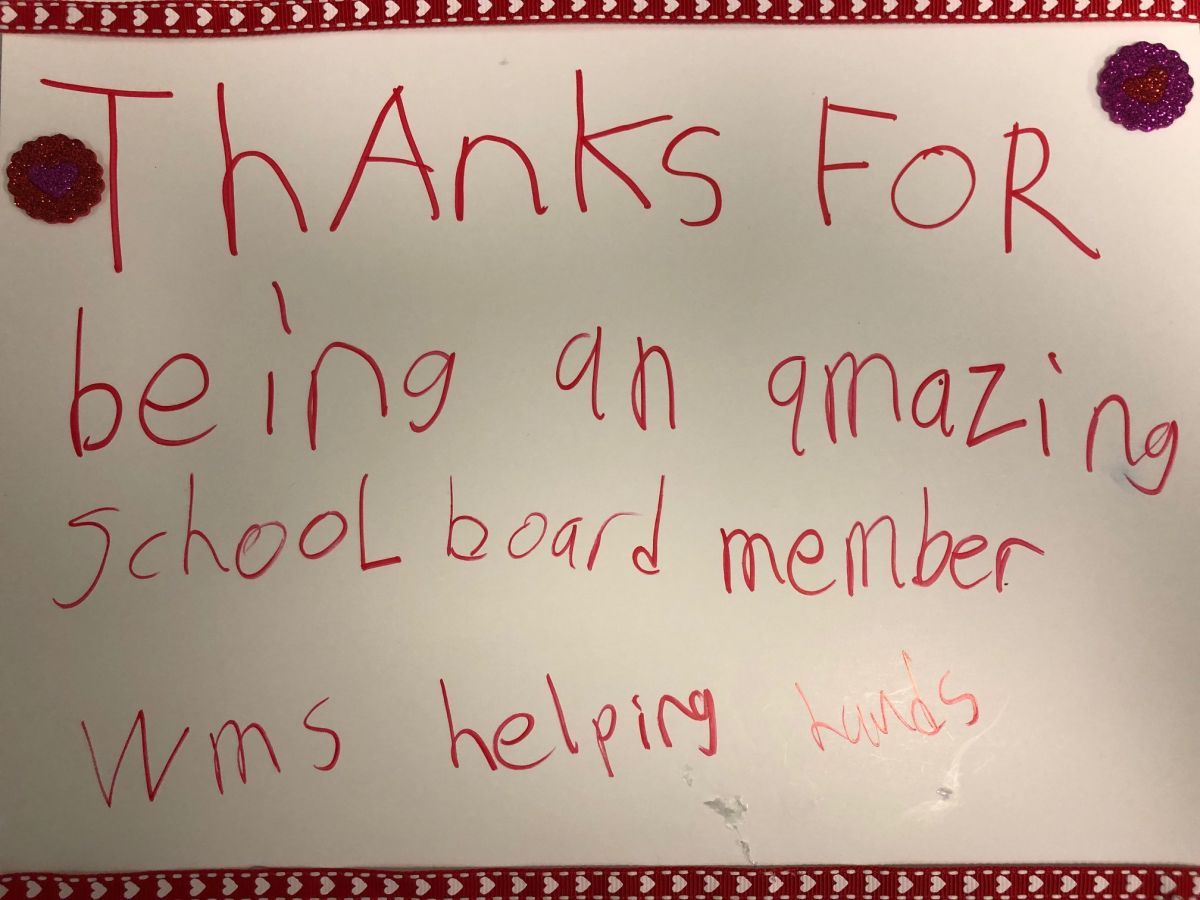 ThAnks FOR
being an amazing
schooL board member
Wms helping hands